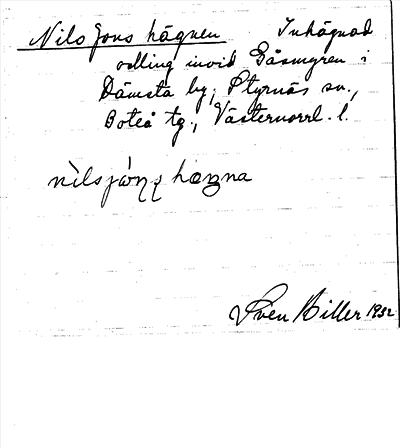 Nils Jons hägnen Inhägnad
odling invid Gåsmyren i
Dämsta by, Styrnäs sn.,
Boteå tg., Västernorrl. l.
hægna
Sven Hiller 1932